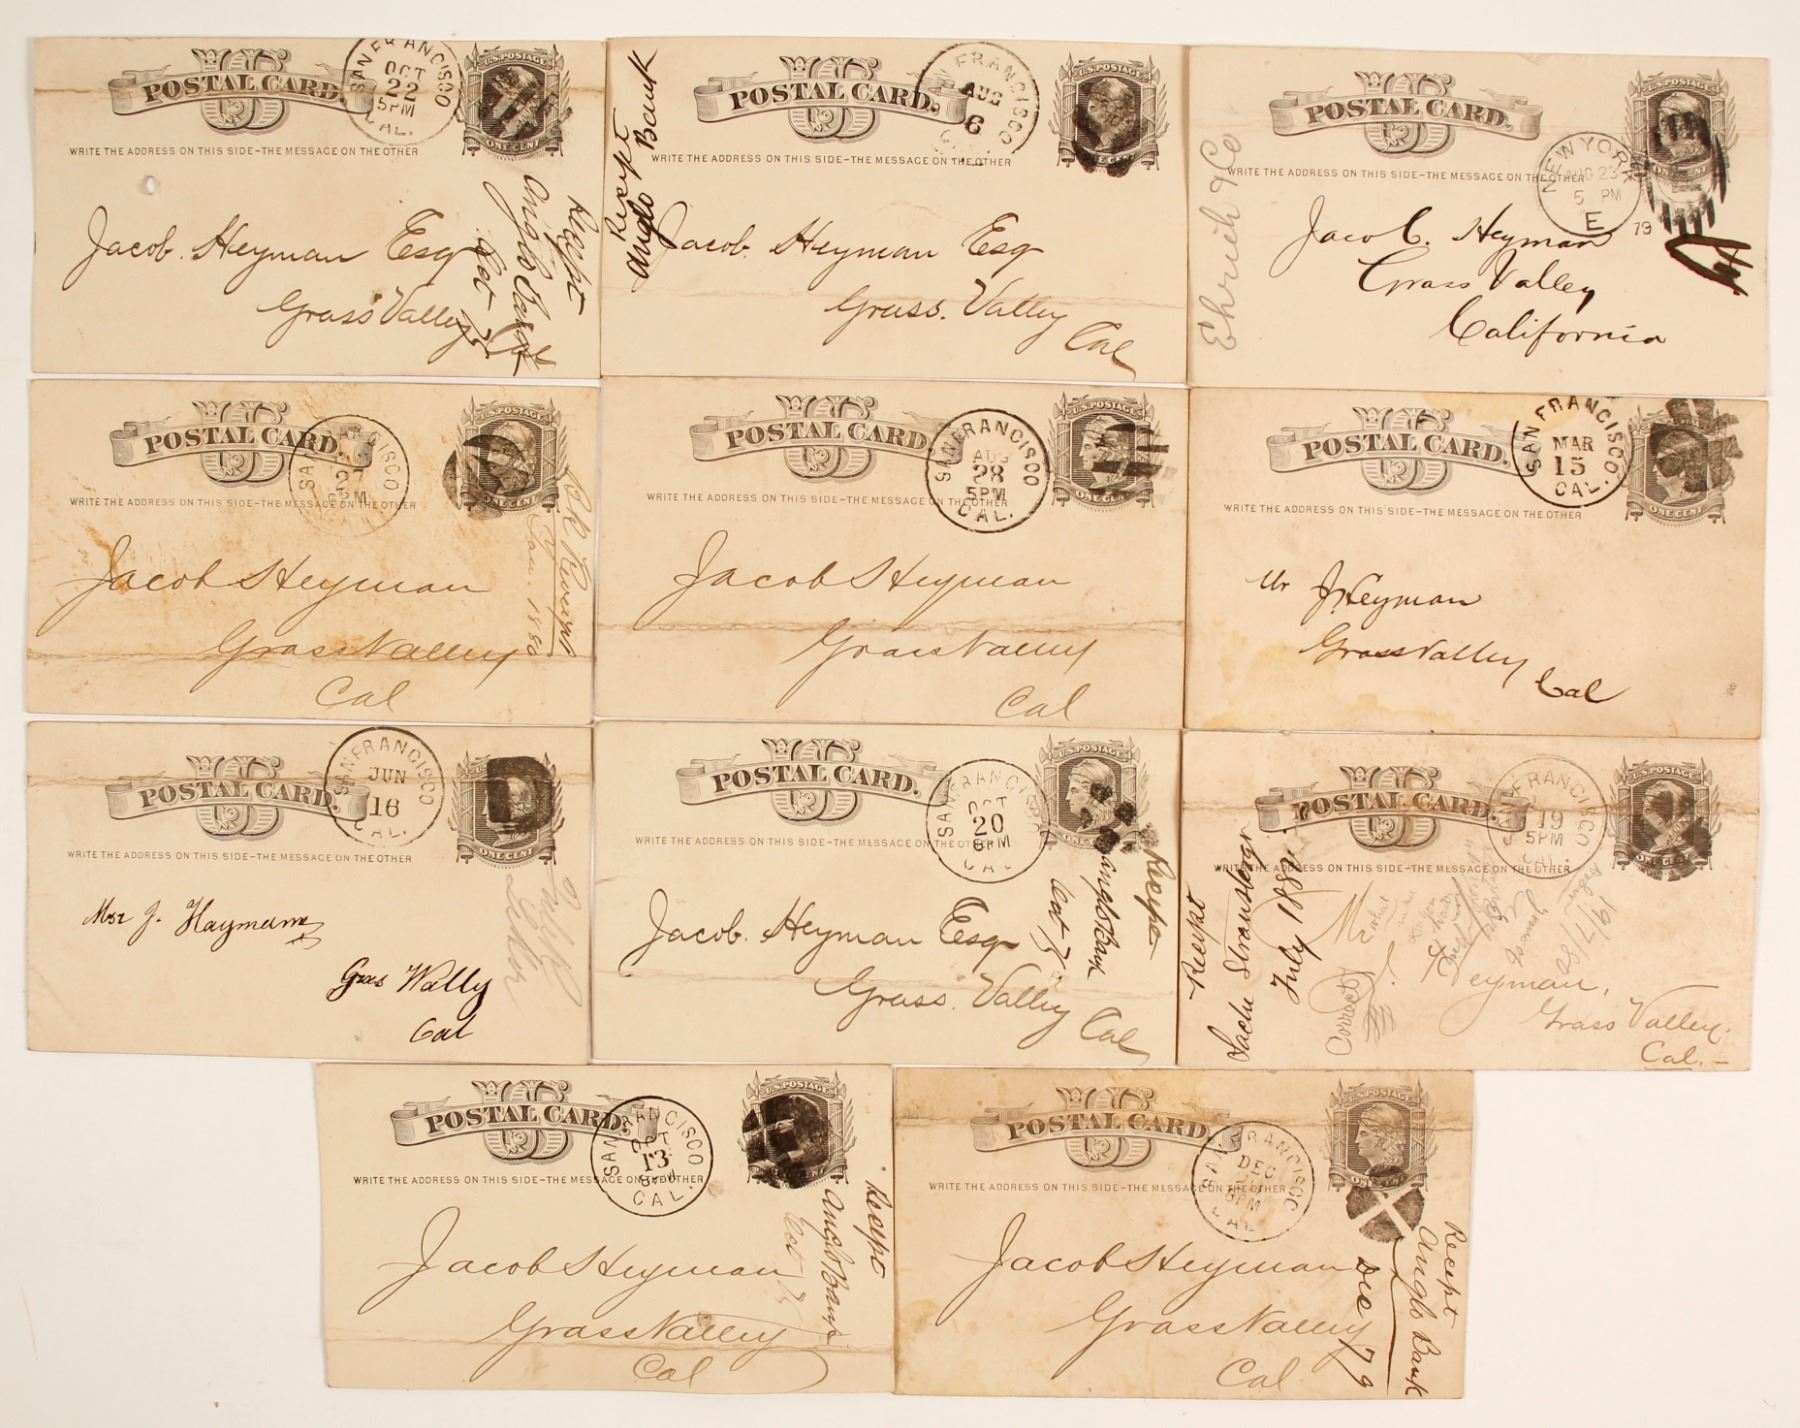 POSTAL CARD.
SAN FRANCISCO
OCT
22
5PM
CAL.
U.S. POSTAGE
ONE CENT
WRITE THE ADDRESS ON THIS SIDE-THE MESSAGE ON THE OTHER
Jacob. Heyman Esq
Grass Valley
Cal
Receipt
Anglo Bank
Oct
POSTAL CARD.
FRANCISCO
AUG
6
U.S. POSTAGE
ONE CENT
WRITE THE ADDRESS ON THIS SIDE-THE MESSAGE ON THE OTHER
Receipt
Anglo Bank
Jacob. Heyman Esq
Grass. Valley
Cal
POSTAL CARD.
NEW YORK
AUG 23
5 PM
E
79
ONE CENT
WRITE THE ADDRESS ON THIS SIDE-THE MESSAGE ON THE OTHER
Ehrich & Co
Jacob. Heyman
Grass Valley
California
POSTAL CARD.
U.S. POSTAGE
ONE CENT
WRITE THE ADDRESS ON THIS SIDE-THE MESSAGE ON THE OTHER
Jacob Heyman
Grass Valley
Cal
Receipt
Jan. 1880
POSTAL CARD.
SAN FRANCISCO
AUG
28
5PM
CAL.
U.S. POSTAGE
ONE CENT
WRITE THE ADDRESS ON THIS SIDE-THE MESSAGE ON THE OTHER
Jacob Heyman
Grass Valley
Cal
POSTAL CARD.
SAN FRANCISCO.
MAR
15
CAL.
ONE CENT
WRITE THE ADDRESS ON THIS SIDE-THE MESSAGE ON THE OTHER
Mr J. Heyman
Grass Valley
Cal
POSTAL CARD.
SAN FRANCISCO
JUN
16
CAL.
U.S. POSTAGE
ONE CENT
WRITE THE ADDRESS ON THIS SIDE-THE MESSAGE ON THE OTHER
J. Haymann
Gras Wally
Cal
POSTAL CARD.
SAN FRANCISCO
OCT
20
6PM
CAL
U.S. POSTAGE
WRITE THE ADDRESS ON THIS SIDE-THE MESSAGE ON THE OTHER
Jacob. Heyman Esq
Grass. Valley
Cal
Receipt
Anglo Bank
Oct 79
POSTAL CARD.
FRANCISCO
19
5PM
CAL.
U.S. POSTAGE
ONE CENT
WRITE THE ADDRESS ON THIS SIDE-THE MESSAGE ON THE OTHER
Receipt
July 1880
Correct
Heyman,
Grass Valley.
Cal.-
19/7/80
POSTAL CARD.
SAN FRANCISCO
OCT
13
CAL.
U.S. POSTAGE
ONE CENT
WRITE THE ADDRESS ON THIS SIDE-THE MESSAGE ON THE OTHER
Jacob Heyman
Grass Valley
Cal
Receipt
Anglo Bank
Oct
POSTAL CARD.
SAN FRANCISCO
DEC
6PM
CAL
U.S. POSTAGE
ONE CENT
WRITE THE ADDRESS ON THIS SIDE-THE MESSAGE ON THE OTHER
Jacob Heyman
Grass Valley
Cal
Receipt
Anglo Bank
Dec 79